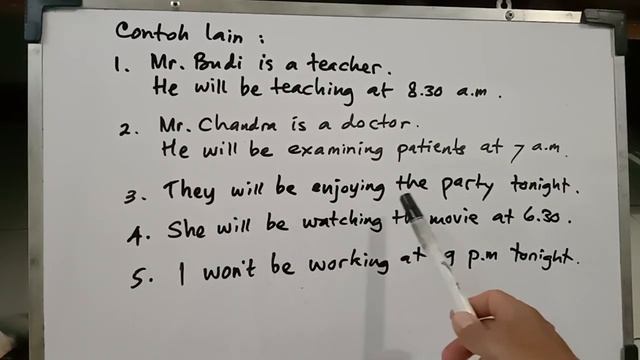 Contoh lain :
1. Mr. Budi is a teacher.
He will be teaching at 8.30 a.m.
2. Mr. Chandra is a doctor.
He will be examining patients at 7 a.m.
3. They will be enjoying the party tonight.
4. She will be watching the movie at 6.30.
5. I won't be working at 9 p.m tonight.